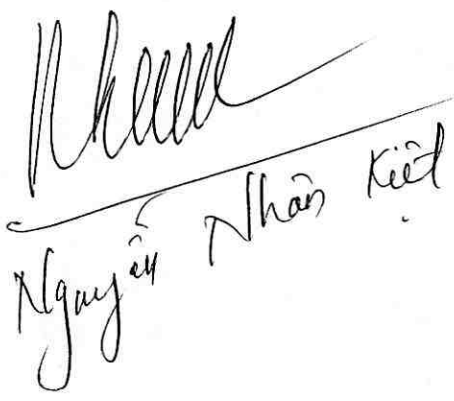 Nguyễn Nhân Kiệt